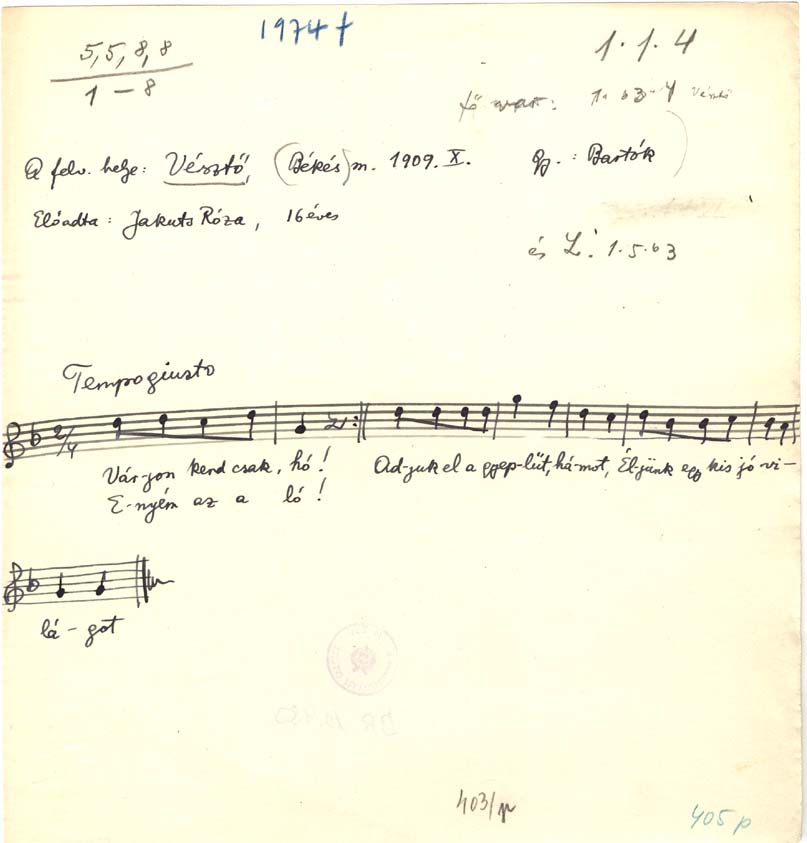 5,5,8,8
1 – 8
1974 †
1.1.4
fő var:
A felv. helye: Vésztő, (Békés) m. 1909. X. Gy.: Bartók
Előadta: Jakuts Róza, 16 éves
és L. 1.5.63
Tempo giusto
2/4
Vár-jon kend csak, hó! Ad-juk el a gyep-lűt, há-mot, Él-jünk egy kis jó vi-
E-nyém az a ló!
lá-got
403/p
405 p